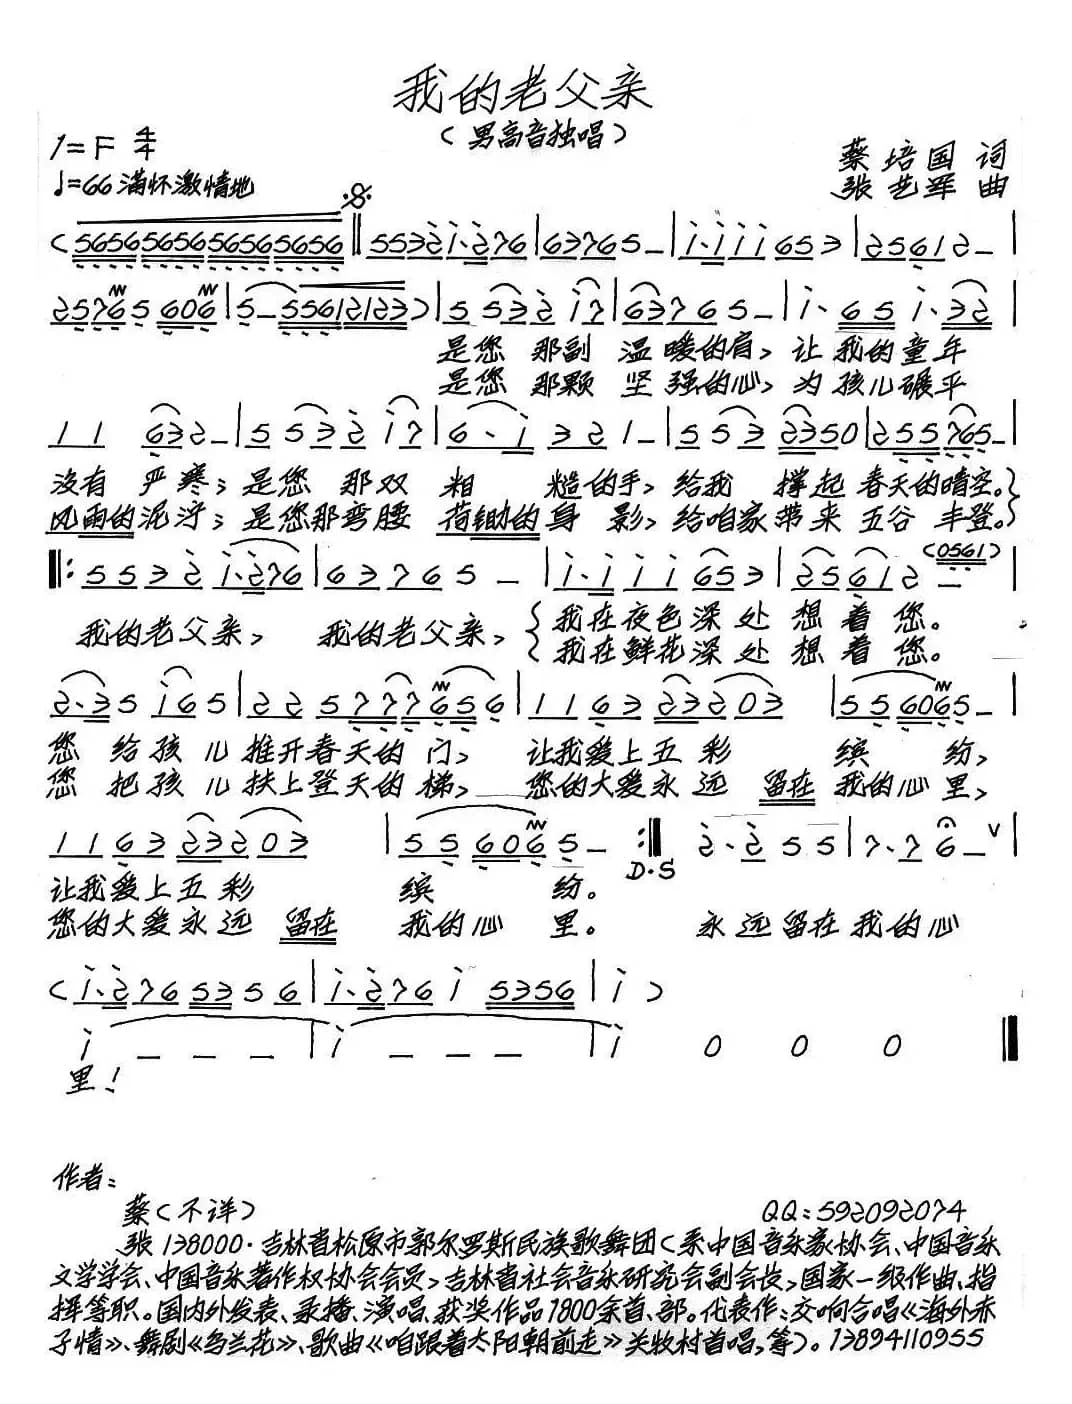 我的老父亲
(男高音独唱)
1=F 4/4
蔡培国 词
♩=66 满怀激情地
张艺军 曲
(5656565656565656‖5532i·276|632765-|i·iii653|256i2-|
2576560 6|5-55612123)|5532i7|632765-|i·65i·32|
是您 那副 温暖的肩, 让我的童年
是您 那颗 坚强的心, 为孩儿碾平
11 632-|5532i7|6·i321-|5532350|255765-|
没有 严寒; 是您 那双 粗 糙的手, 给我 撑起 春天的晴空。
风雨的泥泞; 是您那弯腰 荷锄的身 影, 给咱家带来 五谷 丰登。
(0561)
‖:5532i·276|632765-|i·iii653|25612-|
我的老父亲, 我的老父亲, 我在夜色深处 想着您。
我在鲜花深处 想着您。
2·35i65|225777656|116323203|556065-|
您 给孩儿推开春天的门, 让我爱上五彩 缤 纷,
您 把孩儿扶上登天的梯, 您的大爱永远 留在 我的心里,
116323203|556065-:‖2·255|7·76-∨|
D·S
让我爱上五彩 缤 纷。
您的大爱永远 留在 我的心 里。 永远留在我的心
(i·2765356|i·276i5356|i)
i---|i---|i000‖
里!
作者:
蔡(不详)
QQ:592092074
张138000·吉林省松原市郭尔罗斯民族歌舞团(系中国音乐家协会、中国音乐
文学学会、中国音乐著作权协会会员,吉林省社会音乐研究会副会长,国家一级作曲、指
挥等职。国内外发表、录播、演唱、获奖作品1800余首、部。代表作:交响合唱《海外赤
子情》、舞剧《乌兰花》、歌曲《咱跟着太阳朝前走》关牧村首唱,等)。13894110955